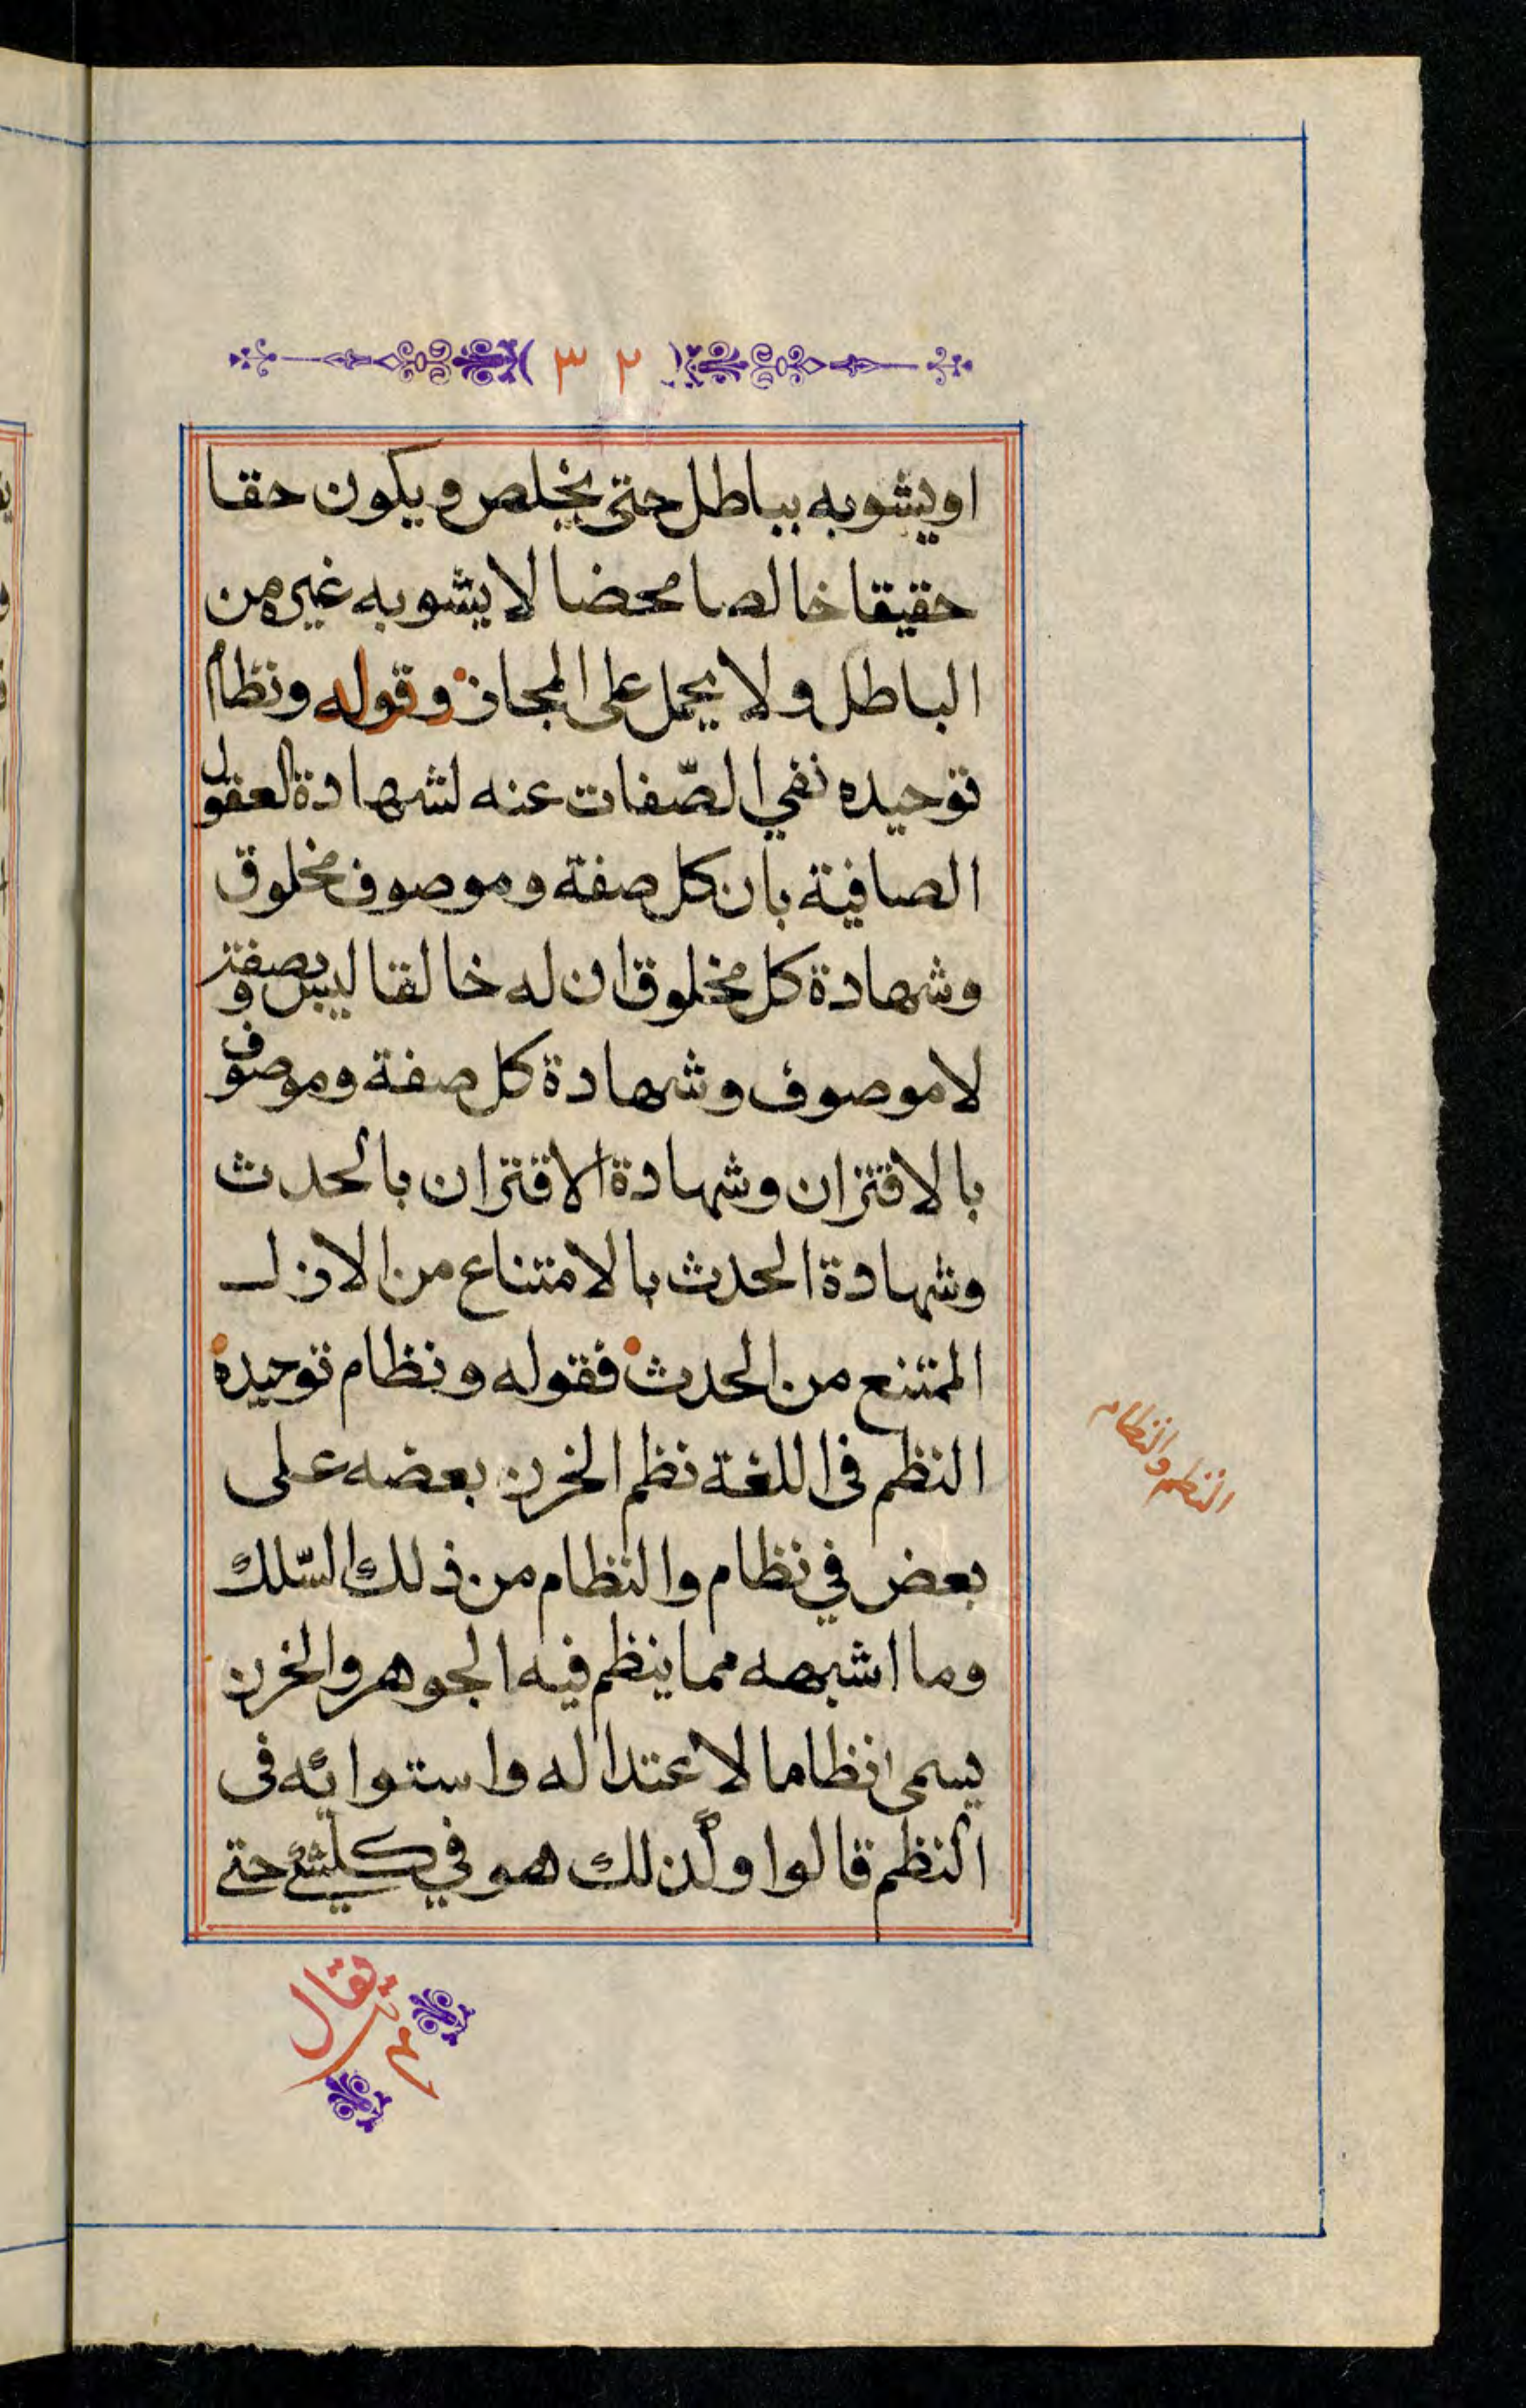 ٣٢
او يشوبه بباطل حتى يخلص ويكون حقا
حقيقا خالصا محضا لا يشوبه غيره من
الباطل ولا يحمل على المجاز وقوله ونظام
توحيده نفي الصّفات عنه لشهادة العقول
الصافية بان كل صفة وموصوف مخلوق
وشهادة كل مخلوق ان له خالقا ليس بصفة و
لا موصوف وشهادة كل صفة وموصوف
بالاقتران وشهادة الاقتران بالحدث
وشهادة الحدث بالامتناع من الازل
الممتنع من الحدث فقوله ونظام توحيده
النظم في اللغة نظم الخرز بعضه على
بعض في نظام والنظام من ذلك السّلك
وما اشبهه مما ينظم فيه الجوهر والخرز
يسمى نظاما لاعتداله واستوائه في
النظم قالوا وكذلك هو في كل شئ حتى
النظم والنظام
يقال